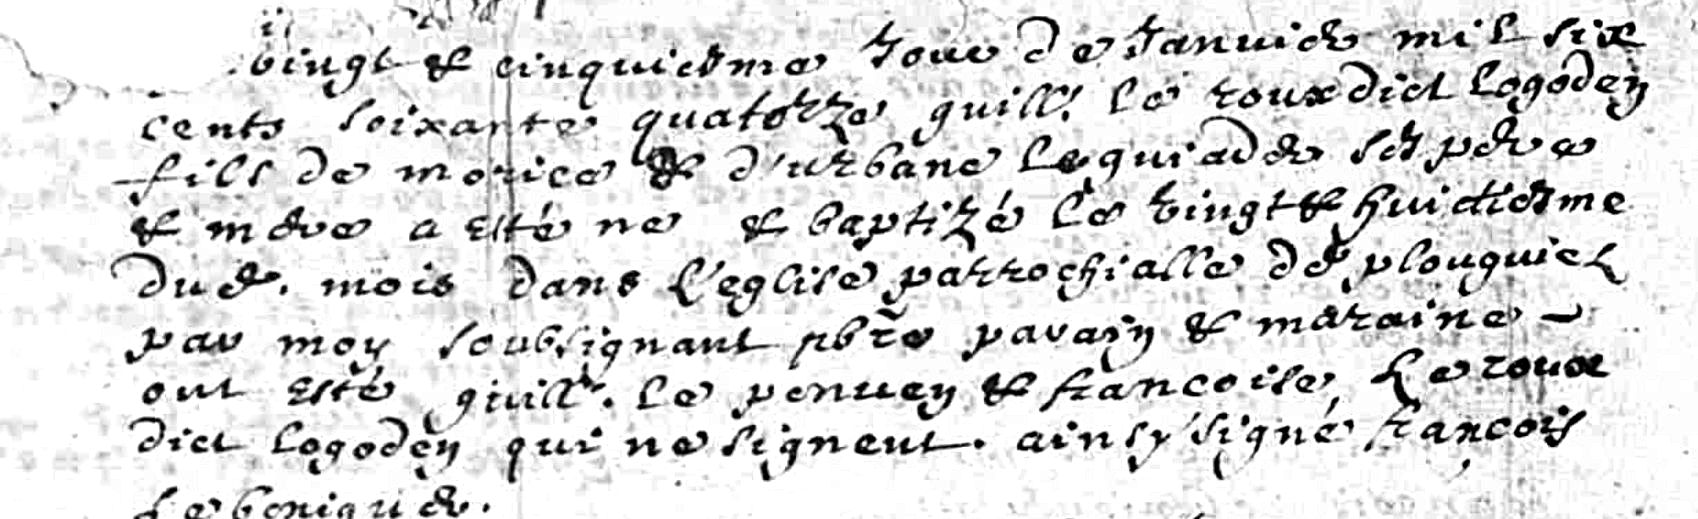 vingt & cinquiesme Jour de Janvier mil six
cents soixante quatorze guill. le roux dict logoden
fils de morice & d'urbane le quiader ses pere
& mere a esté ne & baptizé le vingt & huictiesme
dud. mois dans l'eglise parrochialle de plouguiel
par moy soubsignant pbre parain & maraine
ont esté guill. le penven & francoise Le roux
dict logoden qui ne signent. ainsy signé francois